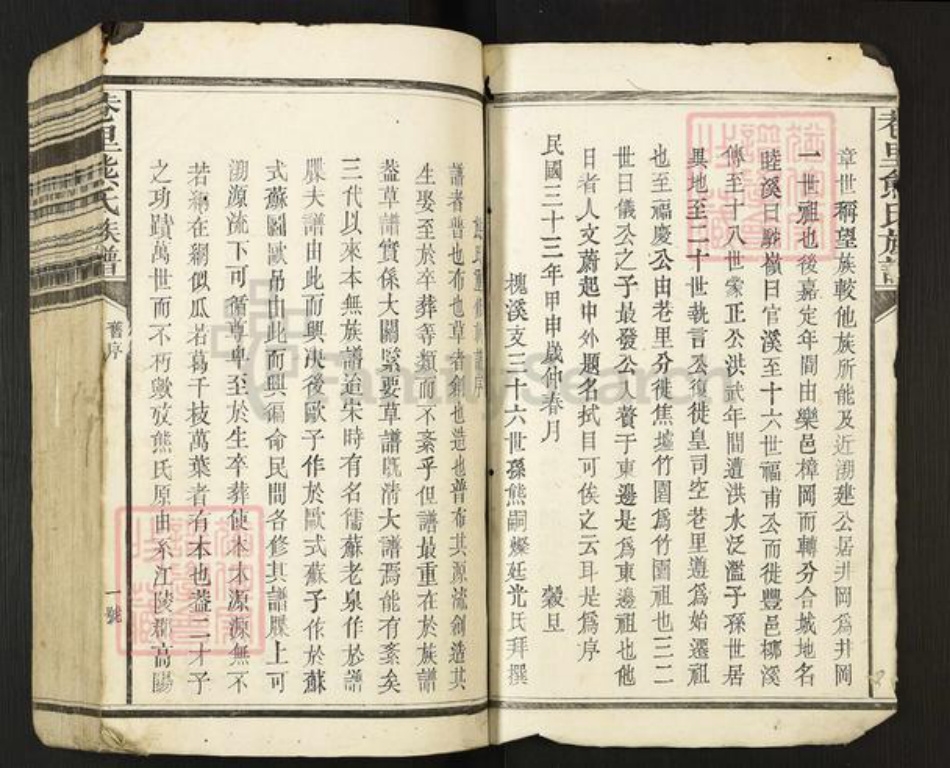 章世稱望族較他族所能及近溯建公居井岡為井岡
一世祖也後嘉定年間由樂邑樟岡而轉分合城地名
睦溪曰點嶺曰官溪至十六世福甫公而徙豐邑槨溪
傳至十八世蒙正公洪武年間遭洪水泛濫子孫世居
異地至二十世執言公復徙皇司空巷里遵為始遷祖
也至福慶公由老里分徙焦墟竹園為竹園祖也三二
世曰儀公之子最發公入贅于東邊是為東邊祖也他
日者人文蔚起中外題名拭目可俟之云耳是為序
民國三十三年甲申歲仲春月 穀旦
槐溪支三十六世孫熊嗣燦廷光氏拜撰
熊氏重修族譜序
譜者普也布也草者創也造也普布其源流創造其
生娶至於卒葬等類而不紊乎但譜最重在於族譜
蓋草譜實係大關緊要草譜既清大譜焉能有紊矣
三代以來本無族譜迨宋時有名儒蘇老泉作於譜
牒夫譜由此而興厥後歐子作於歐式蘇子作於蘇
式蘇圖歐吊由此而興徧命民間各修其譜牒上可
溯源流下可循尊卑至於生卒葬使木本源源無不
若綱在綱似瓜若葛千枝萬葉者有本也蓋二才子
之功蹟萬世而不朽歟攷熊氏原由系江陵郡高陽
巷里熊氏族譜
舊序
一號